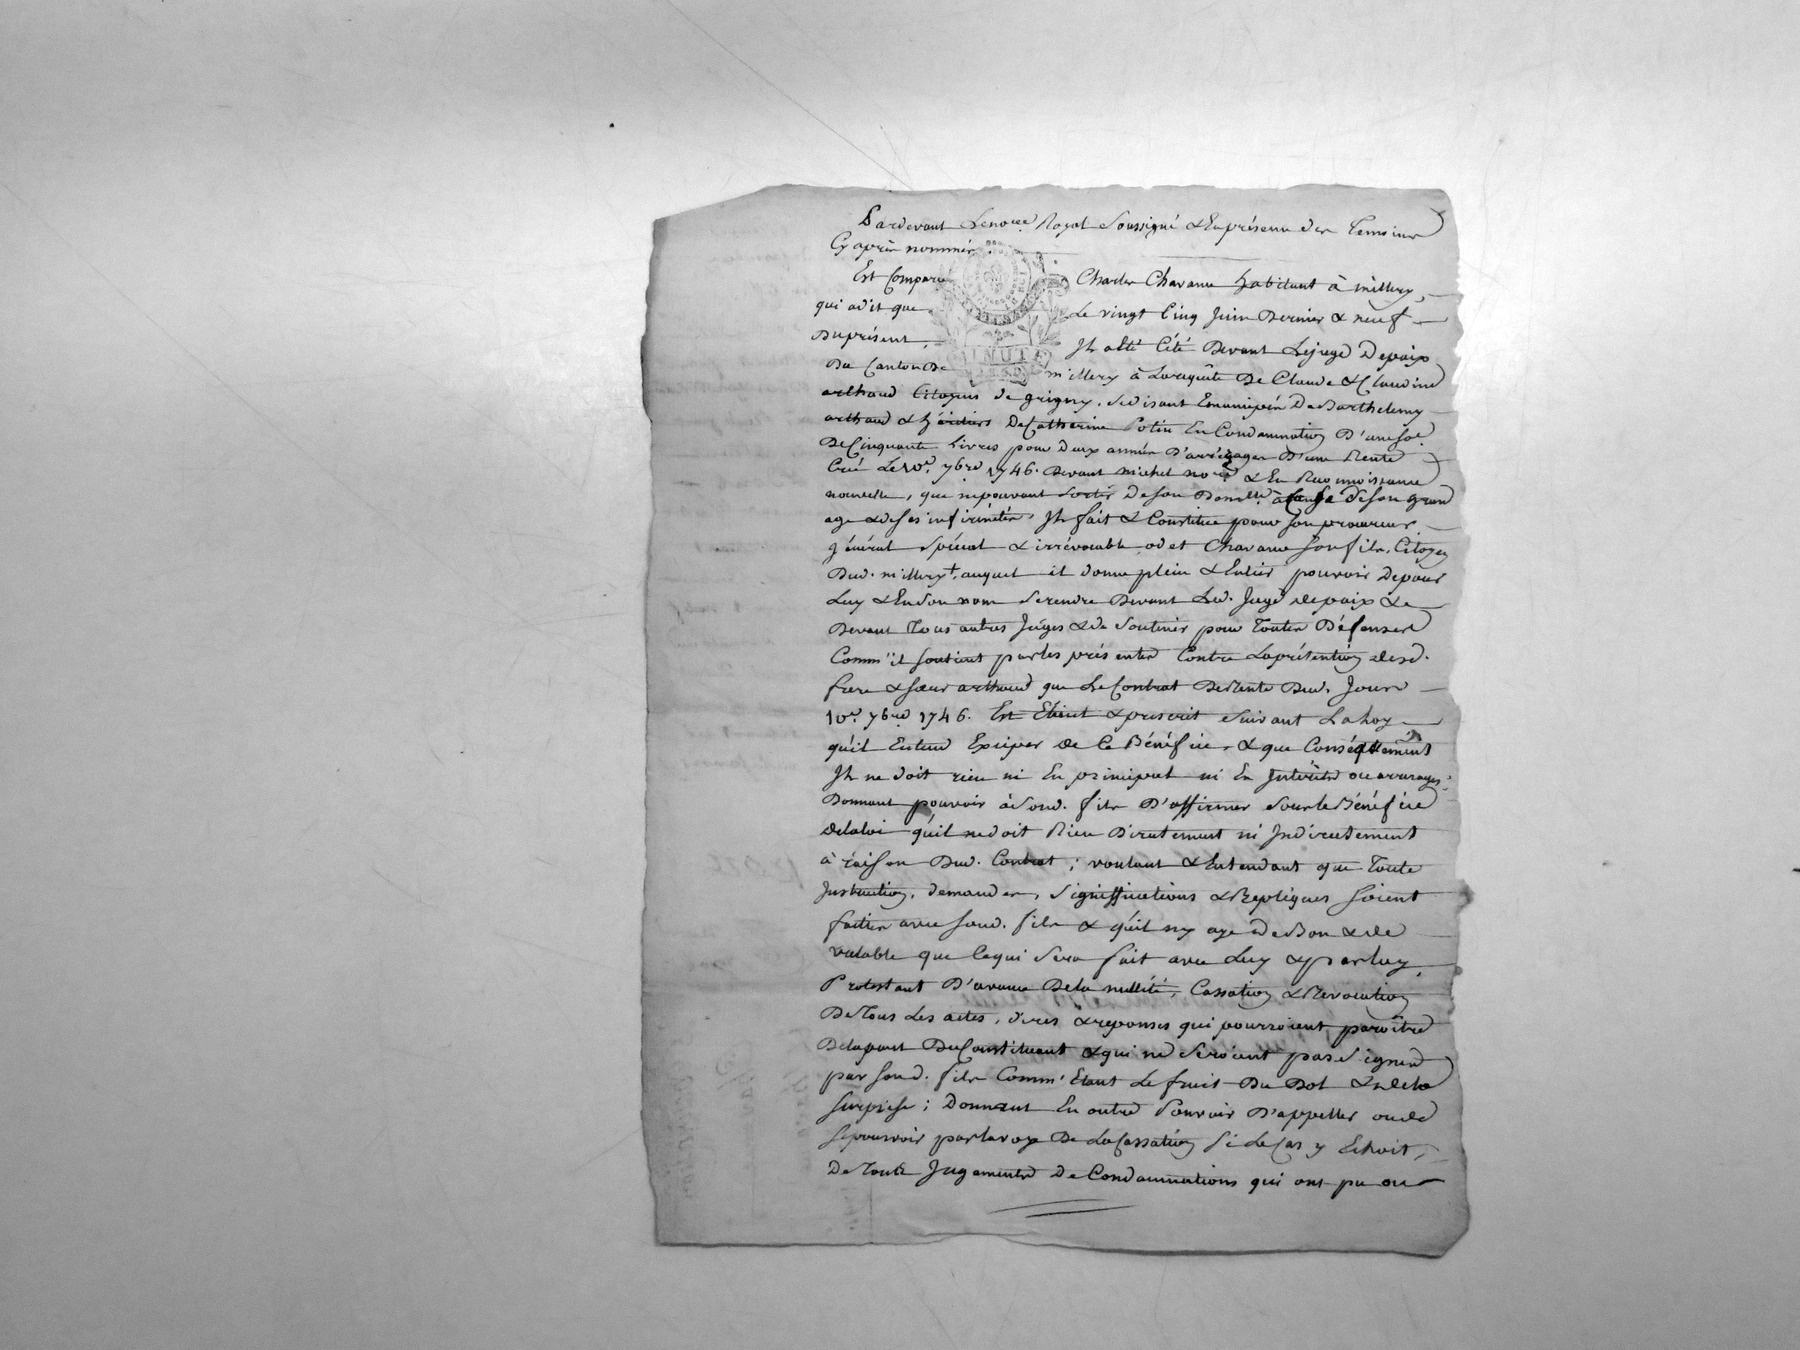 Pardevant Lenore. Royal Soussigné & En présence des Temoins
Cy après nommés.
Est Comparu Charles Chavanne habitant à millery,
qui a dit que Le vingt Cinq Juin Dernier & neuf
Du présent, Il a été Cité Devant Le juge De paix
Du Canton De millery à La requête De Claude & Claudine
arthaud Citoyens de grigny, se disant Emancipés De Barthelemy
arthaud & héritiers De Catherine Potin En Condamnation D'une Soe.
De Cinquante Livres pour Deux années D'arrérages D'une Rente
Créé Le 10e. 7bre 1746. Devant michel nore. & En Reconnoissance
nouvelle, que ne pouvant sortir De son Domlle. à Cause De son grand
age & de ses infirmités, Il fait & Constitue pour son procureur
général Spécial & irrévocable odet Chavanne son fils, Citoyen
Dud. millery +, auquel il donne plein & Entier pouvoir De pour
Luy & En son nom Se rendre Devant Led. Juge de paix &
Devant Tous autres Juges & de Soutenir pour Toutes Défenses
Comm'il soutient par les présentes Contre La prétention desd.
frere & sœur arthaud que Le Contrat De Rente Dud. Jour
10e. 7bre 1746. Est Eteint & prescrit Suivant La Loy
qu'il Entend Exciper de Ce Bénéfice, & que Conséquemment
Il ne doit rien ni En principal ni En Intérêts ou arrérages,
Donnant pouvoir à Sond. fils D'affirmer Sous le Bénéfice
de la loi qu'il ne doit Rien Directement ni Indirectement
à raison Dud. Contrat ; voulant & Entendant que Toute
Instruction, demandes, Significations & Répliques soient
faites avec sond. fils & qu'il n'y aye De Bon & de
valable que Ce qui Sera fait avec Luy & par luy,
Protestant D'avance De la nullité, Cassation & Revocation
De Tous Les actes, dires & reponses qui pourroient paroître
De la part Du Constituant & qui ne Seroient pas Signés
par sond. fils Comm'Etant Le fruit Du Dol & de la
surprise ; Donnant En outre Pouvoir D'appeller ou de
se pourvoir par la voye De La Cassation Si Le Cas y Echoit,
De Touts Jugements De Condamnations qui ont pu ou